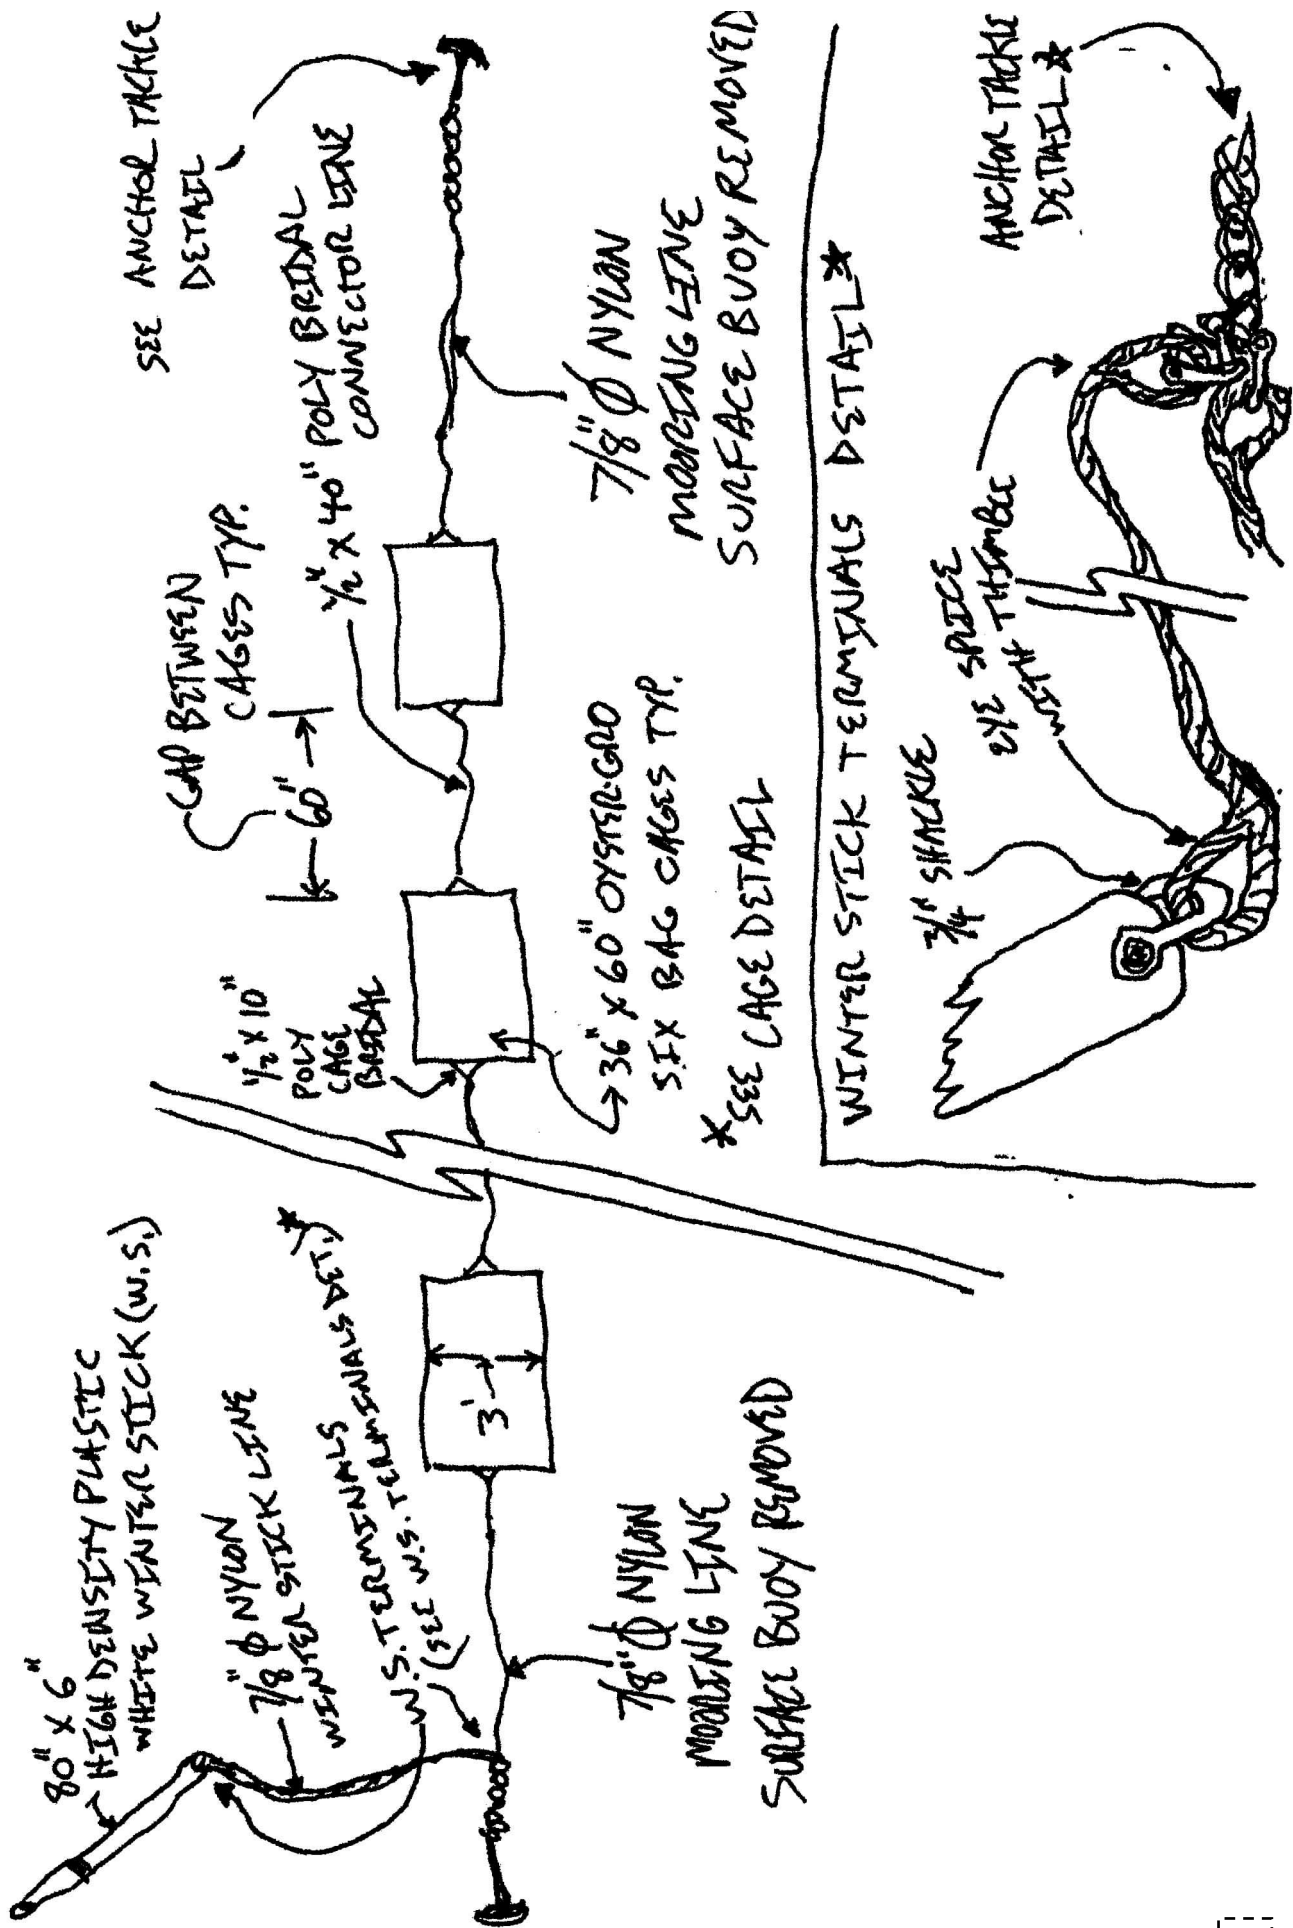 80" X 6"
HIGH DENSITY PLASTIC
WHITE WINTER STICK (W.S.)
7/8" ϕ NYLON
WINTER STICK LINE
W.S. TERMINALS
(SEE W.S. TERMINALS DET.)*
3'
7/8" ϕ NYLON
MOORING LINE
SURFACE BUOY REMOVED
1/2" X 10"
POLY
CAGE
BRIDAL
GAP BETWEEN
CAGES TYP.
60"
1/2" X 40" POLY BRIDAL
CONNECTOR LINE
SEE ANCHOR TACKLE
DETAIL
36" X 60" OYSTER-GRO
SIX BAG CAGES TYP.
*SEE CAGE DETAIL
7/8" ϕ NYLON
MOORING LINE
SURFACE BUOY REMOVED
WINTER STICK TERMINALS DETAIL*
3/4" SHACKLE
EYE SPLICE
WITH THIMBLE
ANCHOR TACKLE
DETAIL*